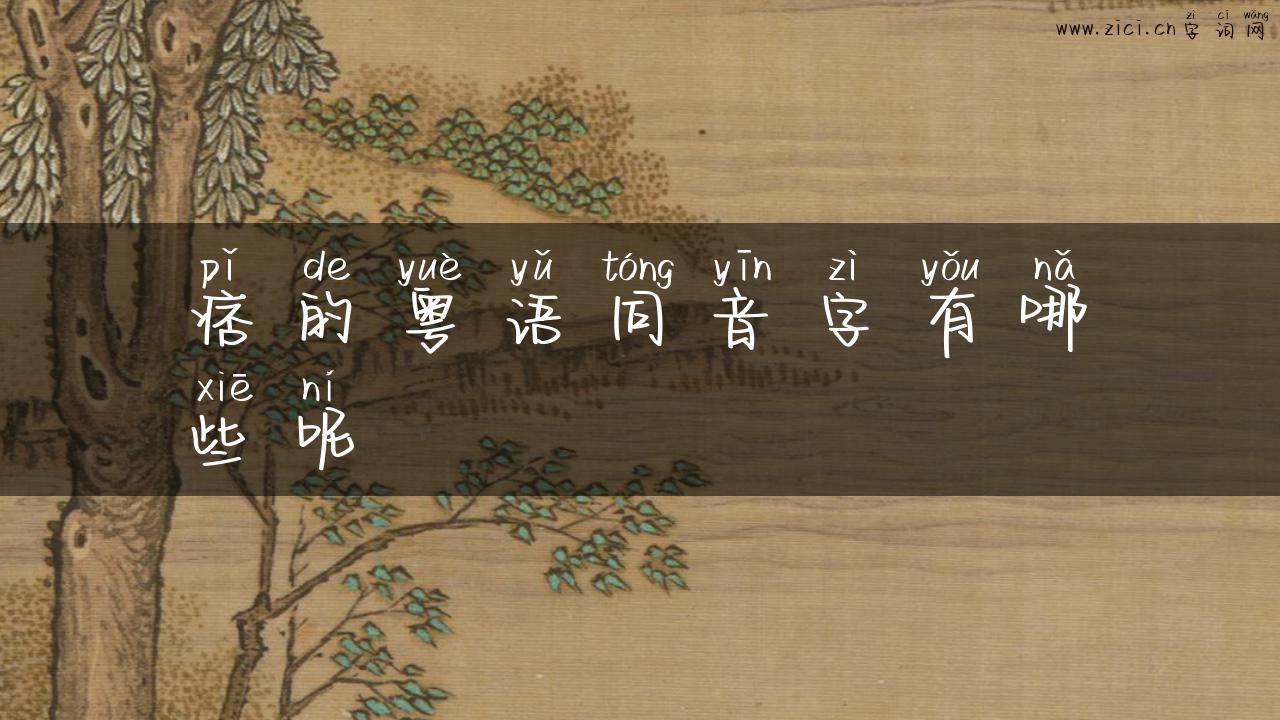 zì cí wǎng
www.zici.cn 字词网
pǐ de yuè yǔ tóng yīn zì yǒu nǎ
痞的粤语同音字有哪
xiē ní
些呢